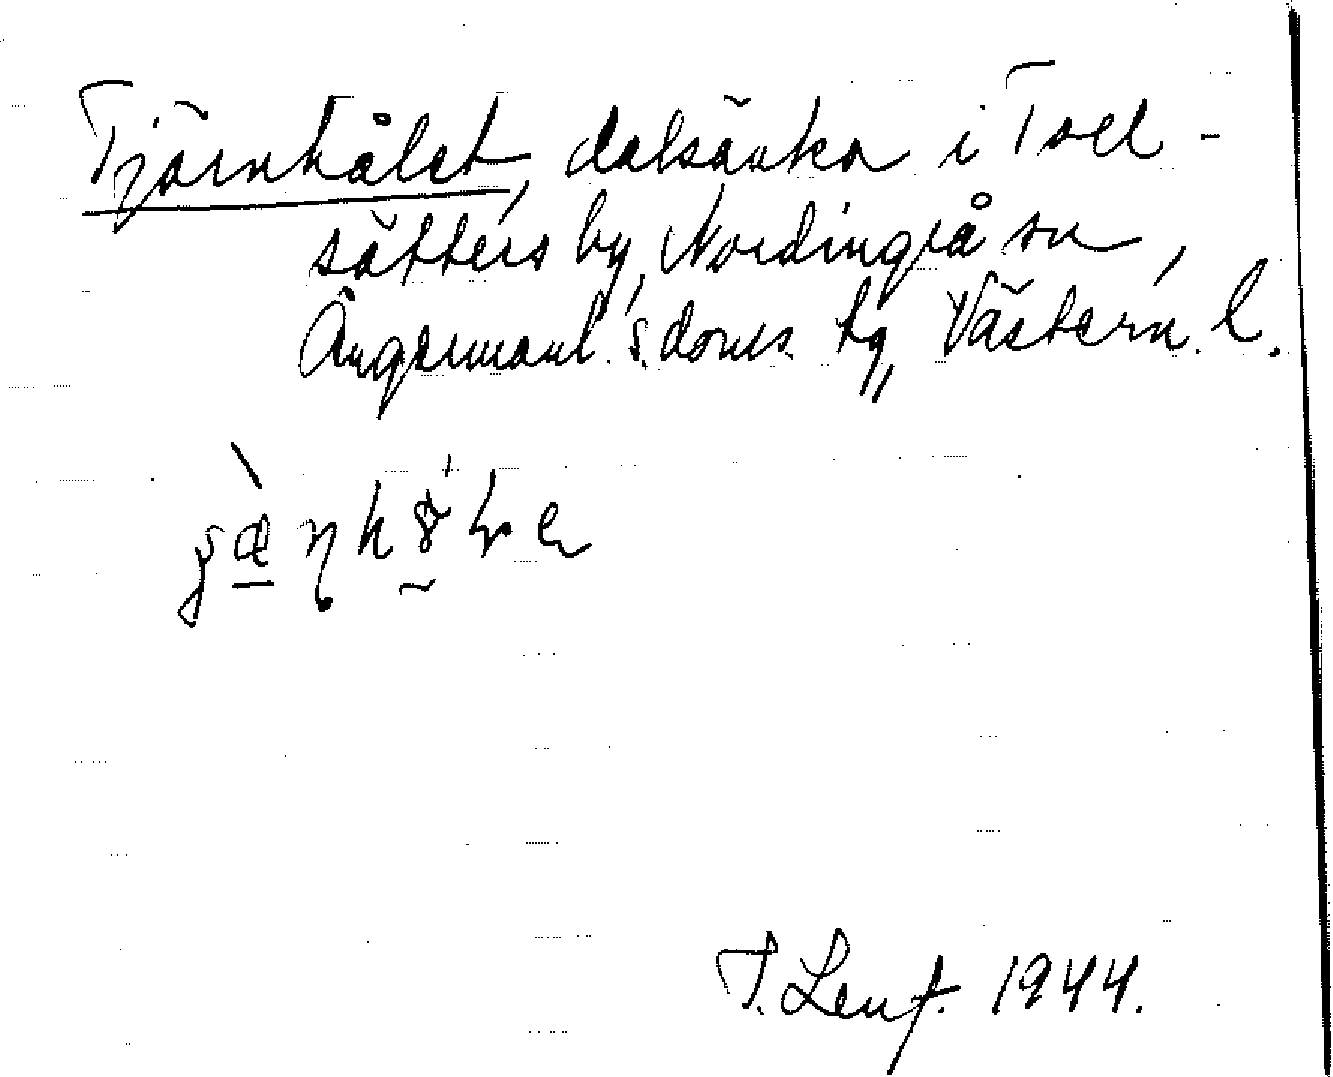 Tjärnhålet, dalsänka i Toll-
sätters by, Nordingrå sn,
Ångermanl. s. doms. tg, Västern. l.
T. Lenf. 1944.